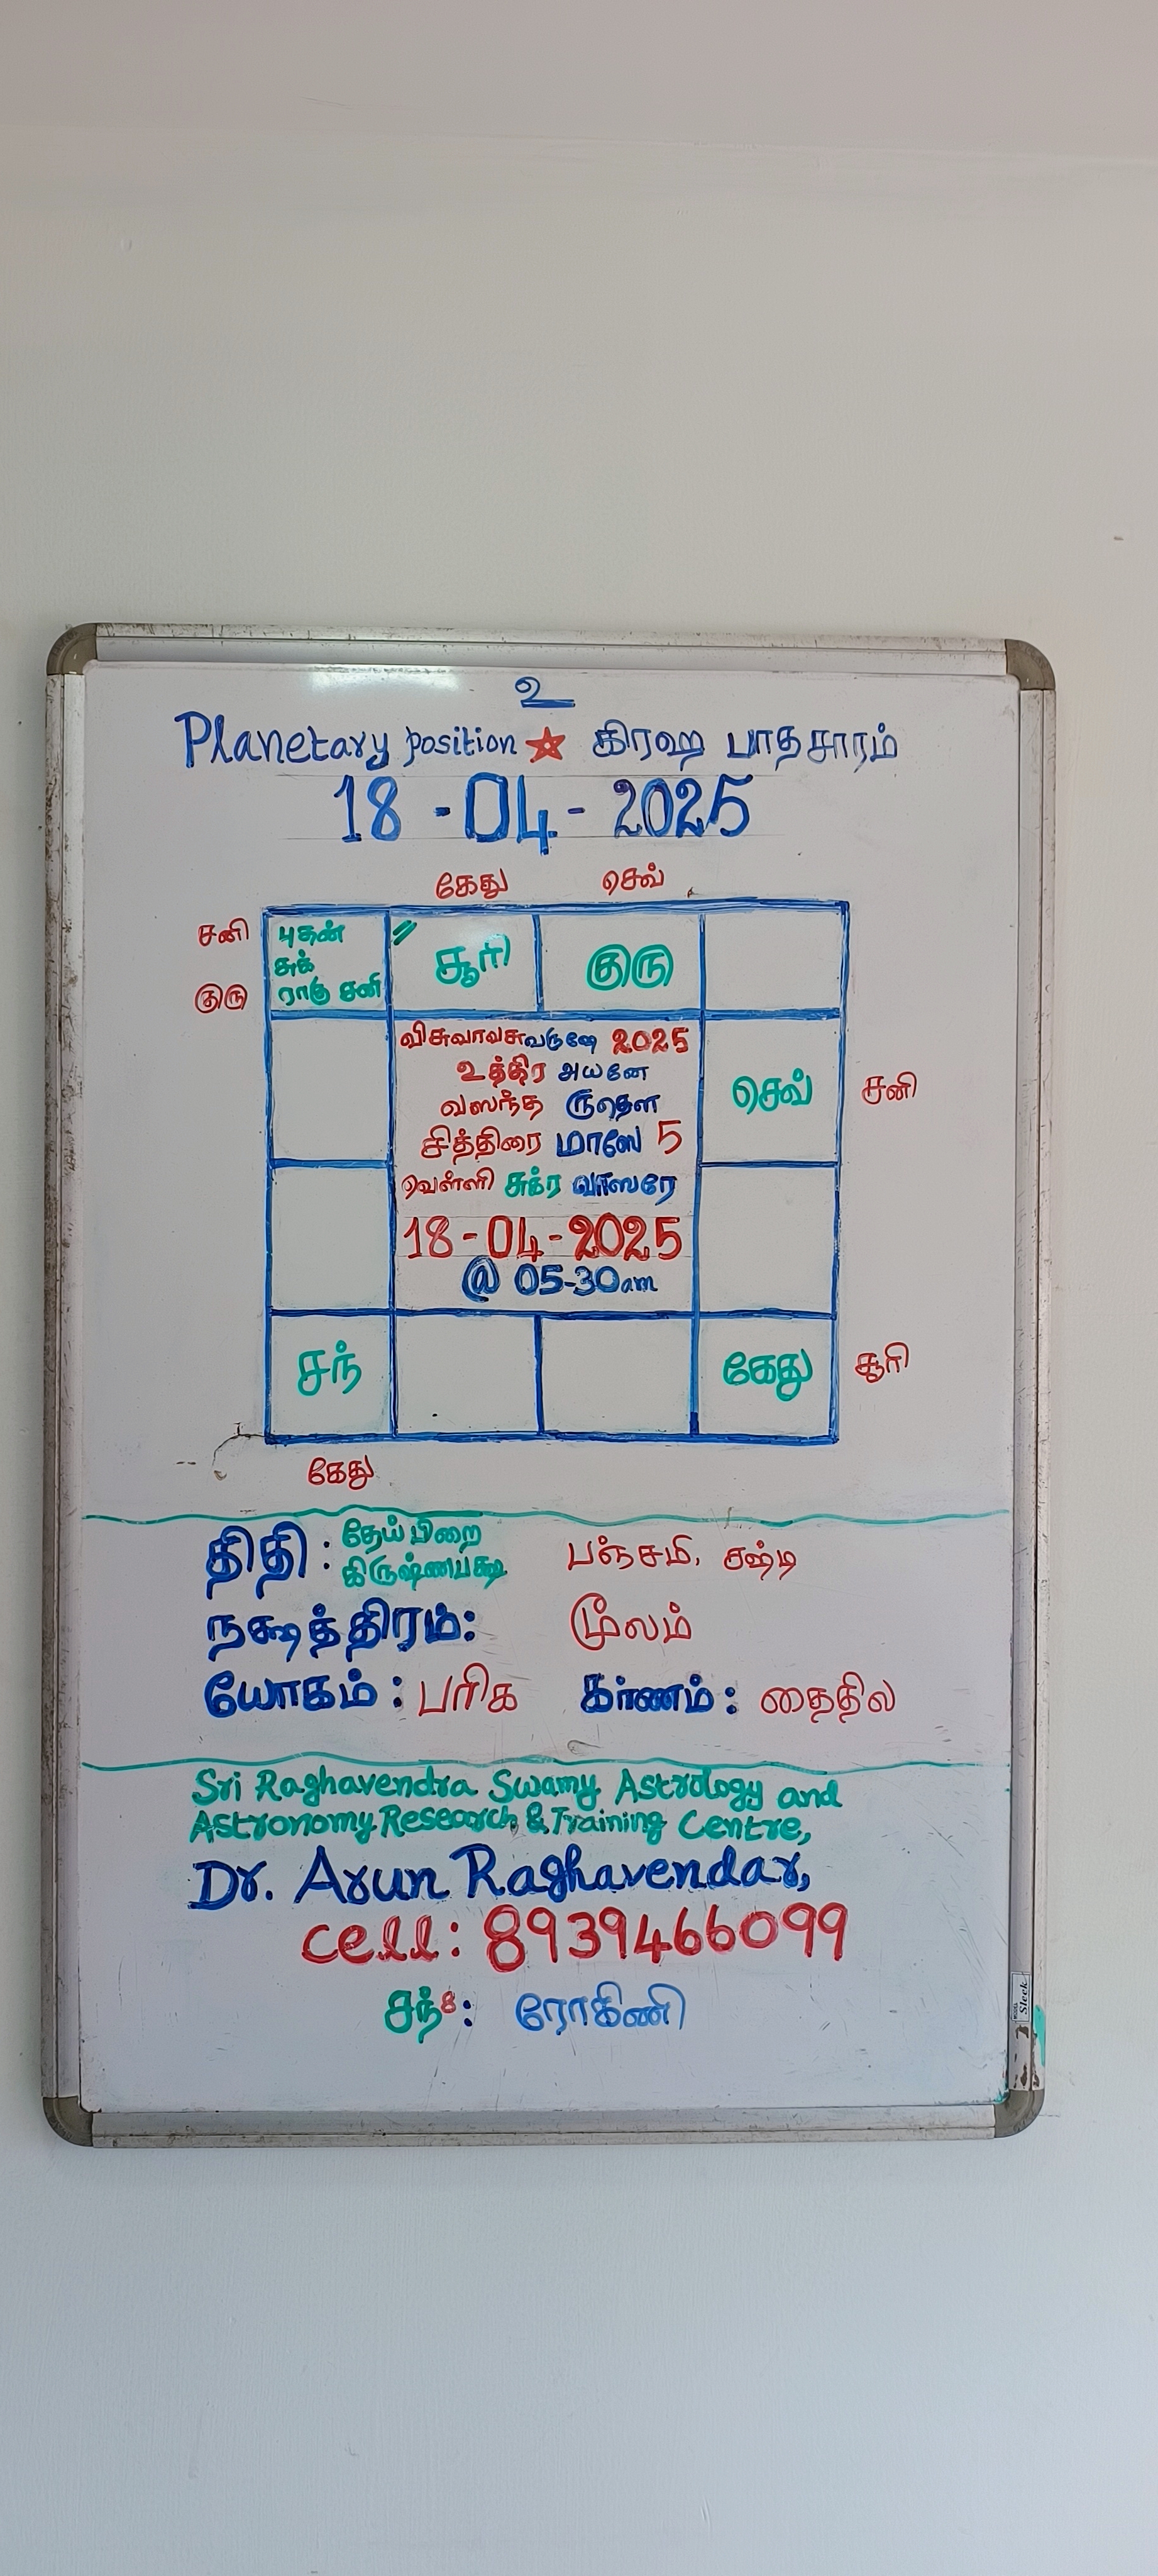 உ
Planetary position ☆ கிரஹ பாதசாரம்
18-04-2025
கேது செவ்
சனி
குரு
புதன்
சுக்
ராகு சனி
சூரி
குரு
விசுவாவசுவருஷே 2025
உத்திர அயனே
வஸந்த ருதௌ
சித்திரை மாஸே 5
வெள்ளி சுக்ர வாஸரே
18-04-2025
@ 05-30am
செவ் சனி
சந்
கேது சூரி
கேது
திதி: தேய்பிறை
கிருஷ்ணபக்ஷ பஞ்சமி, சஷ்டி
நக்ஷத்திரம்: மூலம்
யோகம்: பரிக கர்ணம்: தைதில
Sri Raghavendra Swamy Astrology and
Astronomy Research & Training Centre,
Dr. Arun Raghavendar,
Cell: 8939466099
சந்8: ரோகிணி
Sleek